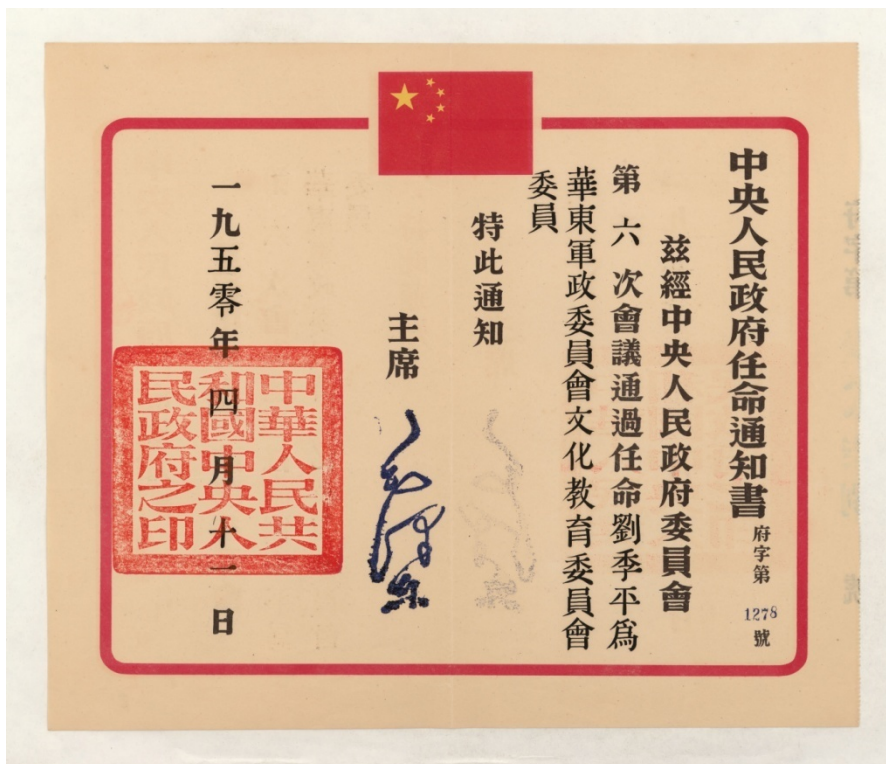 中央人民政府任命通知書
府字第1278號
茲經中央人民政府委員會
第六次會議通過任命劉季平爲
華東軍政委員會文化教育委員會
委員
特此通知
主席
毛澤東
一九五零年四月十一日
中華人民共
和國中央人
民政府之印